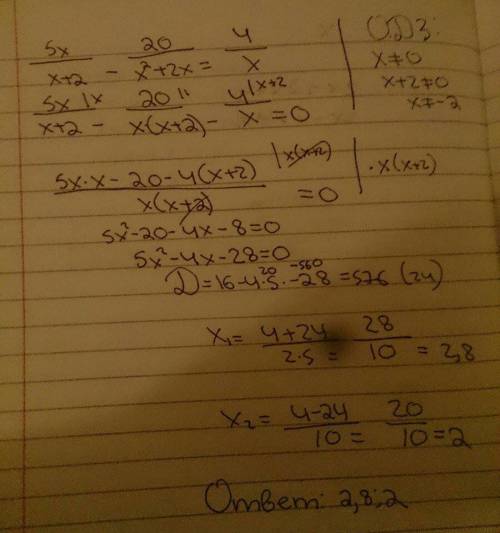 5x/(x+2) - 20/(x²+2x) = 4/x
ОДЗ:
x≠0
x+2≠0
x≠-2
5x|x/(x+2) - 20|1/(x(x+2)) - 4|x+2/x = 0
(5x·x-20-4(x+2))/(x(x+2)) |x(x+2) = 0 | ·x(x+2)
5x²-20-4x-8=0
5x²-4x-28=0
20 -560
D=16-4·5·-28=576 (24)
x₁= (4+24)/(2·5) = 28/10 = 2,8
x₂= (4-24)/10 = 20/10 = 2
Ответ: 2,8;2